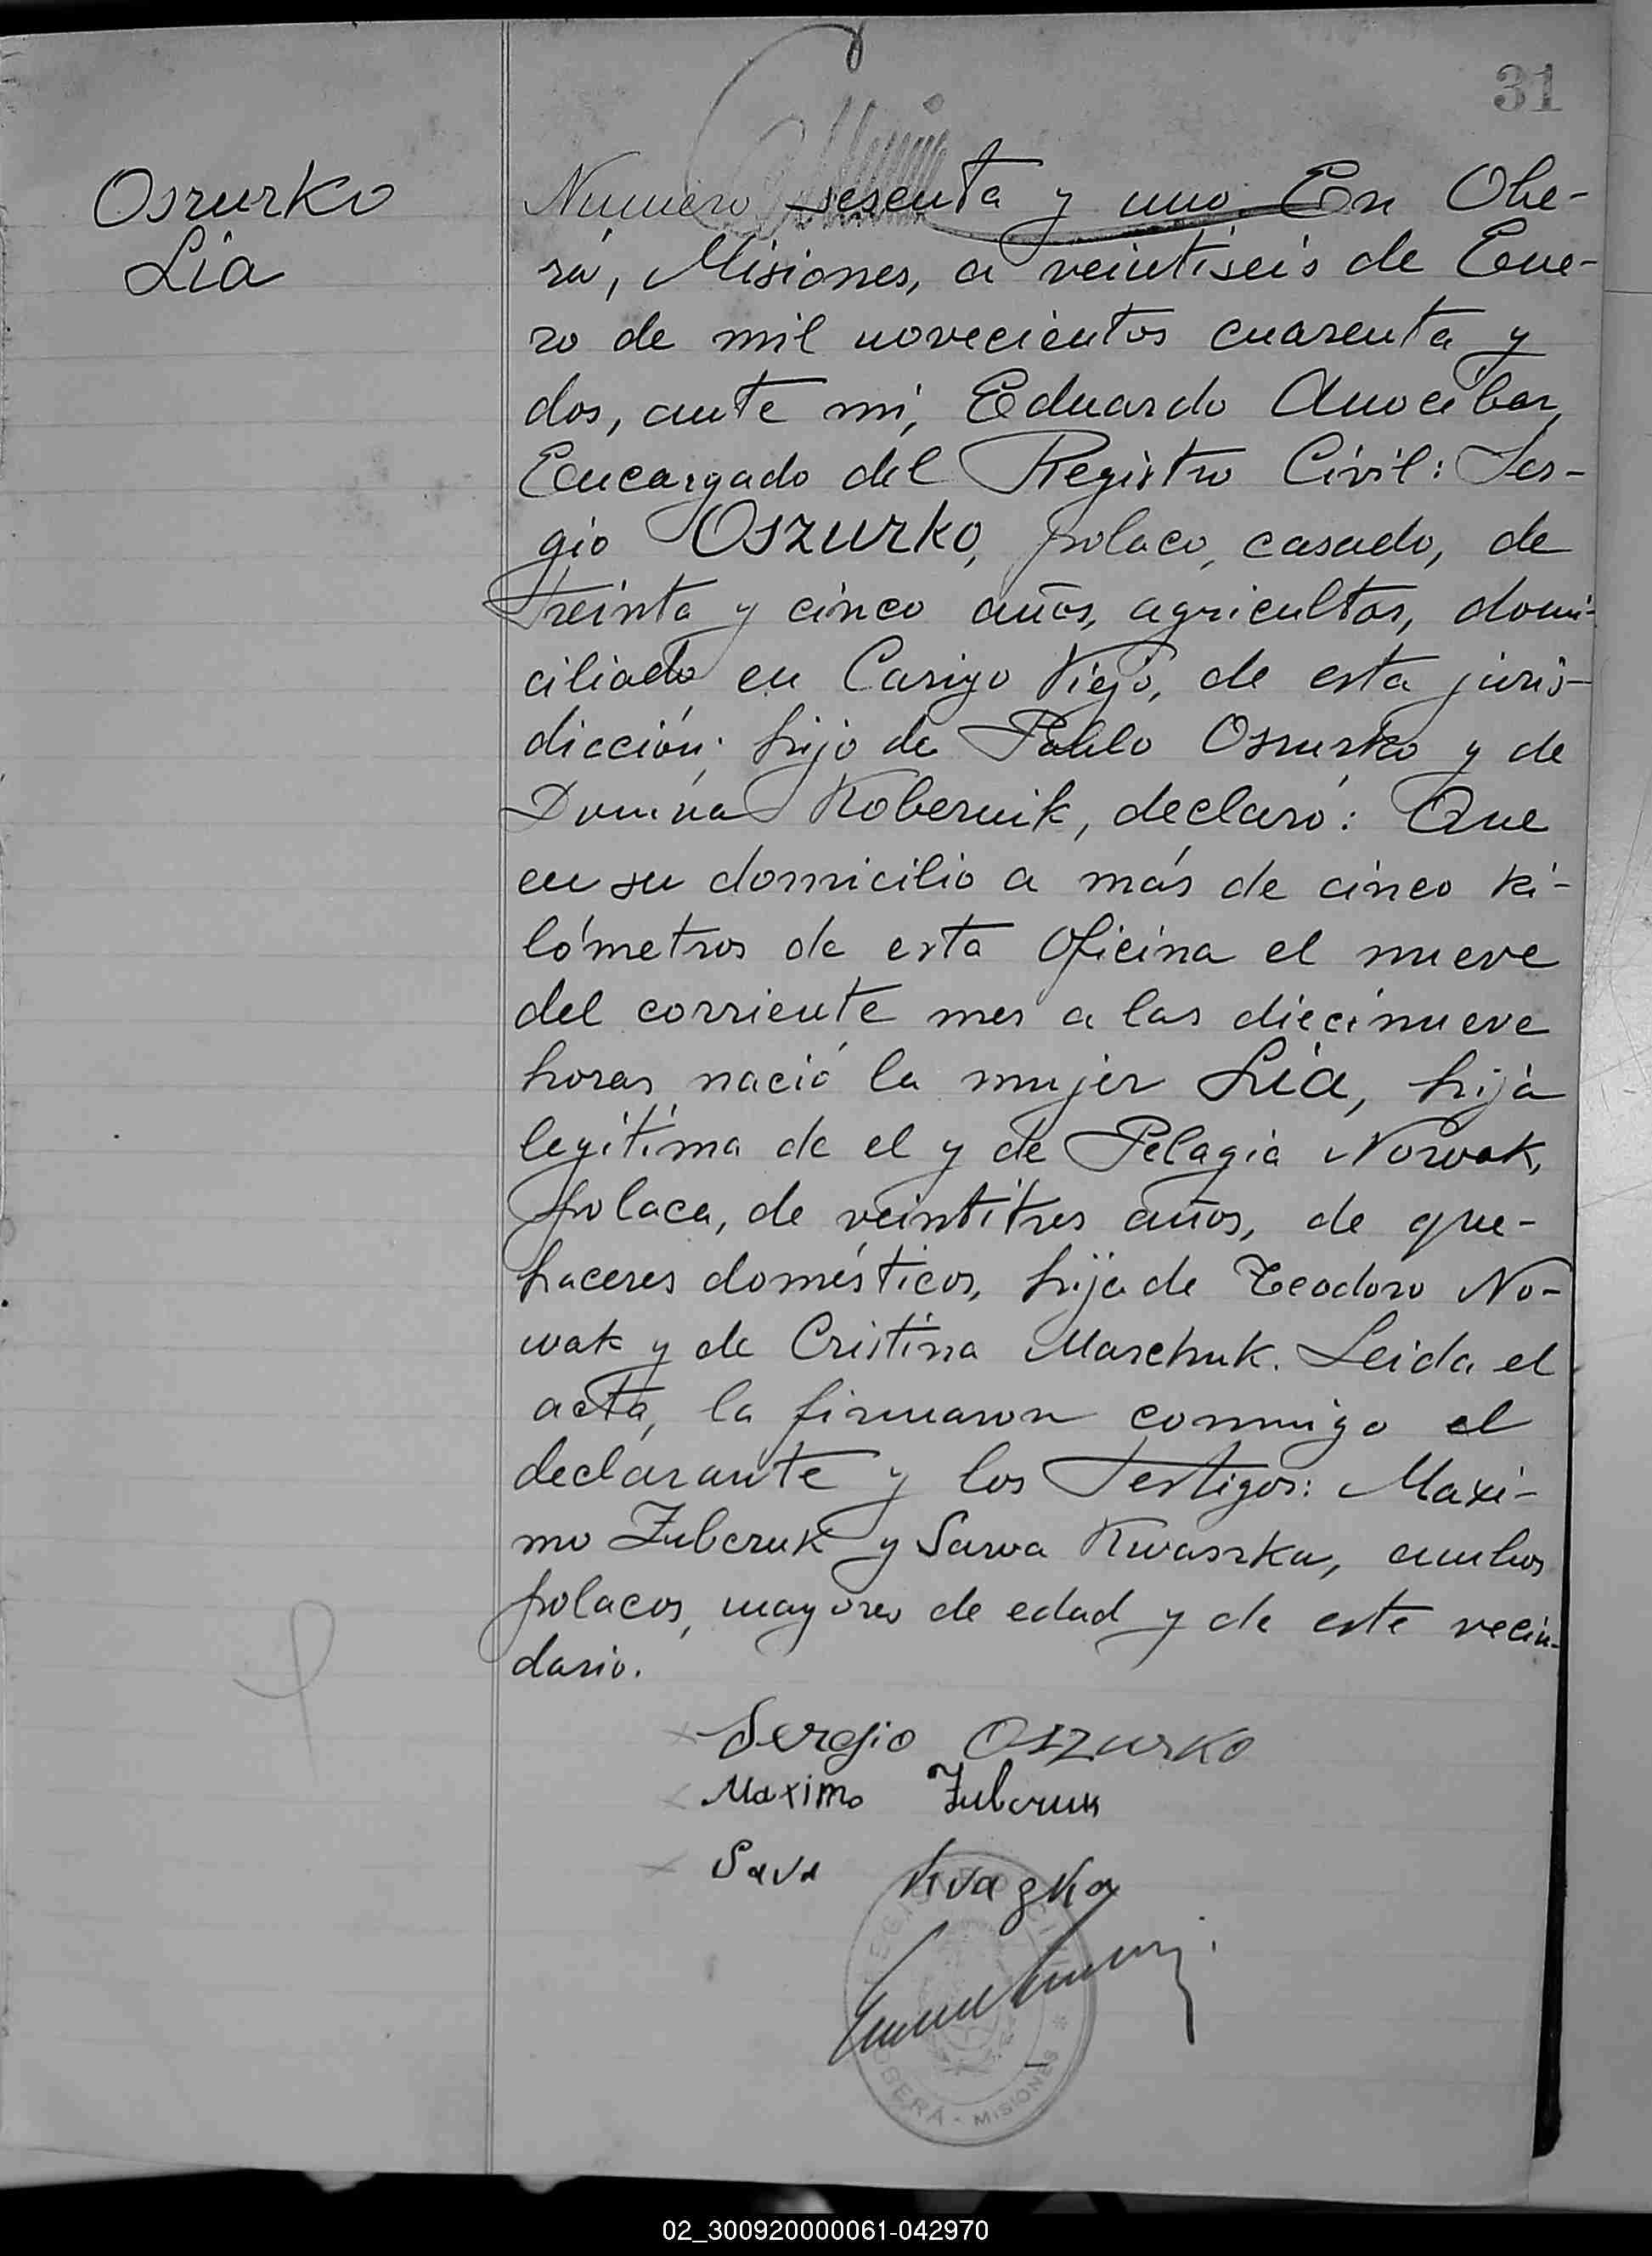 31
Oszurko
Lia
Número sesenta y uno. En Obe-
rá, Misiones, a veintiseis de Ene-
ro de mil novecientos cuarenta y
dos, ante mi, Eduardo Anocibar,
Encargado del Registro Civil: Ser-
gio OSZURKO, polaco, casado, de
treinta y cinco años, agricultor, domi-
ciliado en Viejo, de esta juris-
dicción; hijo de Pablo Oszurko y de
Kobernik, declaró: Que
en su domicilio a más de cinco ki-
lómetros de esta Oficina el nueve
del corriente mes a las diecinueve
horas nació la mujer Lia, hija
legítima de el y de Pelagia Nowak,
polaca, de veintitres años, de que-
haceres domésticos, hija de Teodoro No-
wak y de Cristina Marchuk. Leida el
acta, la firmaron conmigo el
declarante y los Testigos: Maxi-
mo Zubczuk y Sawa Kwaszka, ambos
polacos, mayores de edad y de este vecin-
dario.
Sergio OSZURKO
Maximo Zubczuk
Sava Kvazka
REGISTRO CIVIL
OBERÁ - MISIONES
02_300920000061-042970